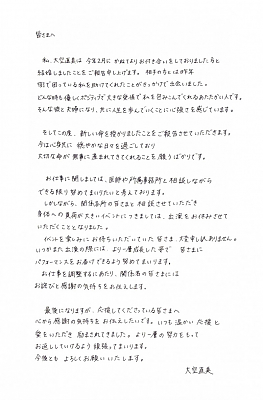 皆さまへ
私、大空直美は 今年2月に かねてよりお付き合いをしておりました方と
結婚しましたことをご報告申し上げます。 相手の方とは昨年
街で困っている私を助けてくれたことがきっかけで出会いました。
どんな時も優しくポジティブで大きな愛情で私を包みこんでくれるあたたかい人です。
そんな彼と夫婦になり、共に人生を歩んでいくことに心強さを感じています。
そしてこの度、新しい命を授かりましたことをご報告させていただきます。
今は心身共に 穏やかな日々を過ごしており
大切な命が 無事に産まれてきてくれることを願うばかりです。
お仕事に関しましては、医師や所属事務所と相談しながら
できる限り努めてまいりたいと考えております。
しかしながら、関係各所の皆さまと相談させていただき
身体への負荷が大きいイベントにつきましては、出演をお休みさせて
いただくこととなりました。
イベントを楽しみにお待ちいただいていた皆さま、大変申し訳ありません。
いつかまた出演の際には、より一層成長した姿で 皆さまに
パフォーマンスをお届けできるよう努めてまいります。
お仕事を調整するにあたり、関係者の皆さまには
お詫びと感謝の気持ちをお伝えします。
最後になりますが、応援してくださっている皆さまへ
心から感謝の気持ちをお伝えしたいです。いつも温かい応援と
愛をいただき 励まされてきました。より一層の努力をもって
お返ししていけるよう頑張ってまいります。
今後とも よろしくお願いいたします。
大空直美